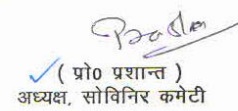 ( प्रो0 प्रशान्त )
अध्यक्ष, सोविनिर कमेटी